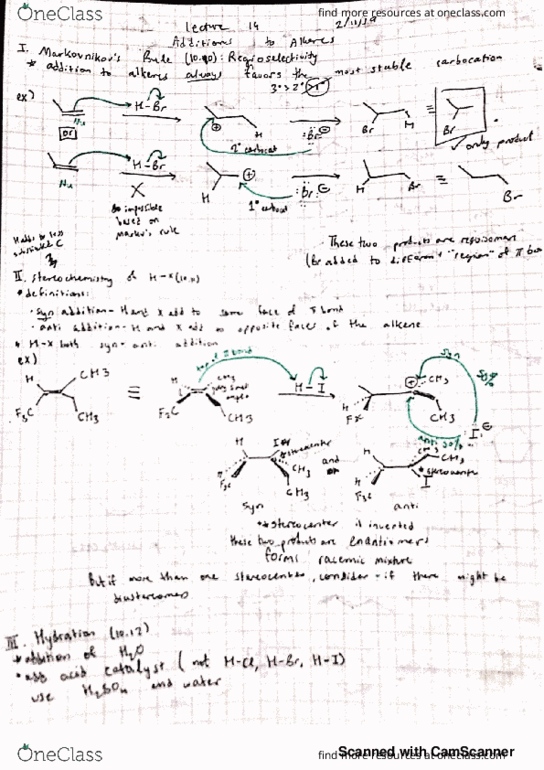 OneClass
find more resources at oneclass.com
Lecture 14
2/11/19
Additions to Alkenes
I. Markovnikov's Rule (10.10): Regioselectivity
* addition to alkenes always favors the most stable carbocation
3° > 2° > 1°
ex)
Nu
H-Br
H
:Br:⊖
Br
H
≡
Br
or
2° carbocat
✓ only product
Nu
H-Br
X
H
⊕
:Br:⊖
H
Br
≡
Br
1° carbocat
impossible
based on
Markov's rule
H adds to less
substituted C
These two products are regioisomers
(Br added to different "region" of π bond
II. Stereochemistry of H-X (10.11)
• definitions:
• syn addition - H and X add to same face of π bond
• anti addition - H and X add to opposite faces of the alkene
* H-X both syn + anti addition
ex)
H
CH3
F3C
CH3
≡
top of π bond
H
F3C
CH3
H-I
⊕
CH3
CH3
syn
50%
anti 50%
I:⊖
H
I
stereocenter
H
F3C
CH3
CH3
syn
and
or
H
H
F3C
CH3
stereocenter
I
anti
* stereocenter is inverted
these two products are enantiomers
forms racemic mixture
But if more than one stereocenter, consider if there might be
diastereomers
III. Hydration (10.12)
* addition of H2O
• add acid catalyst (not H-Cl, H-Br, H-I)
use H2SO4 and water
OneClass
find more resources at oneclass.com
Scanned with CamScanner